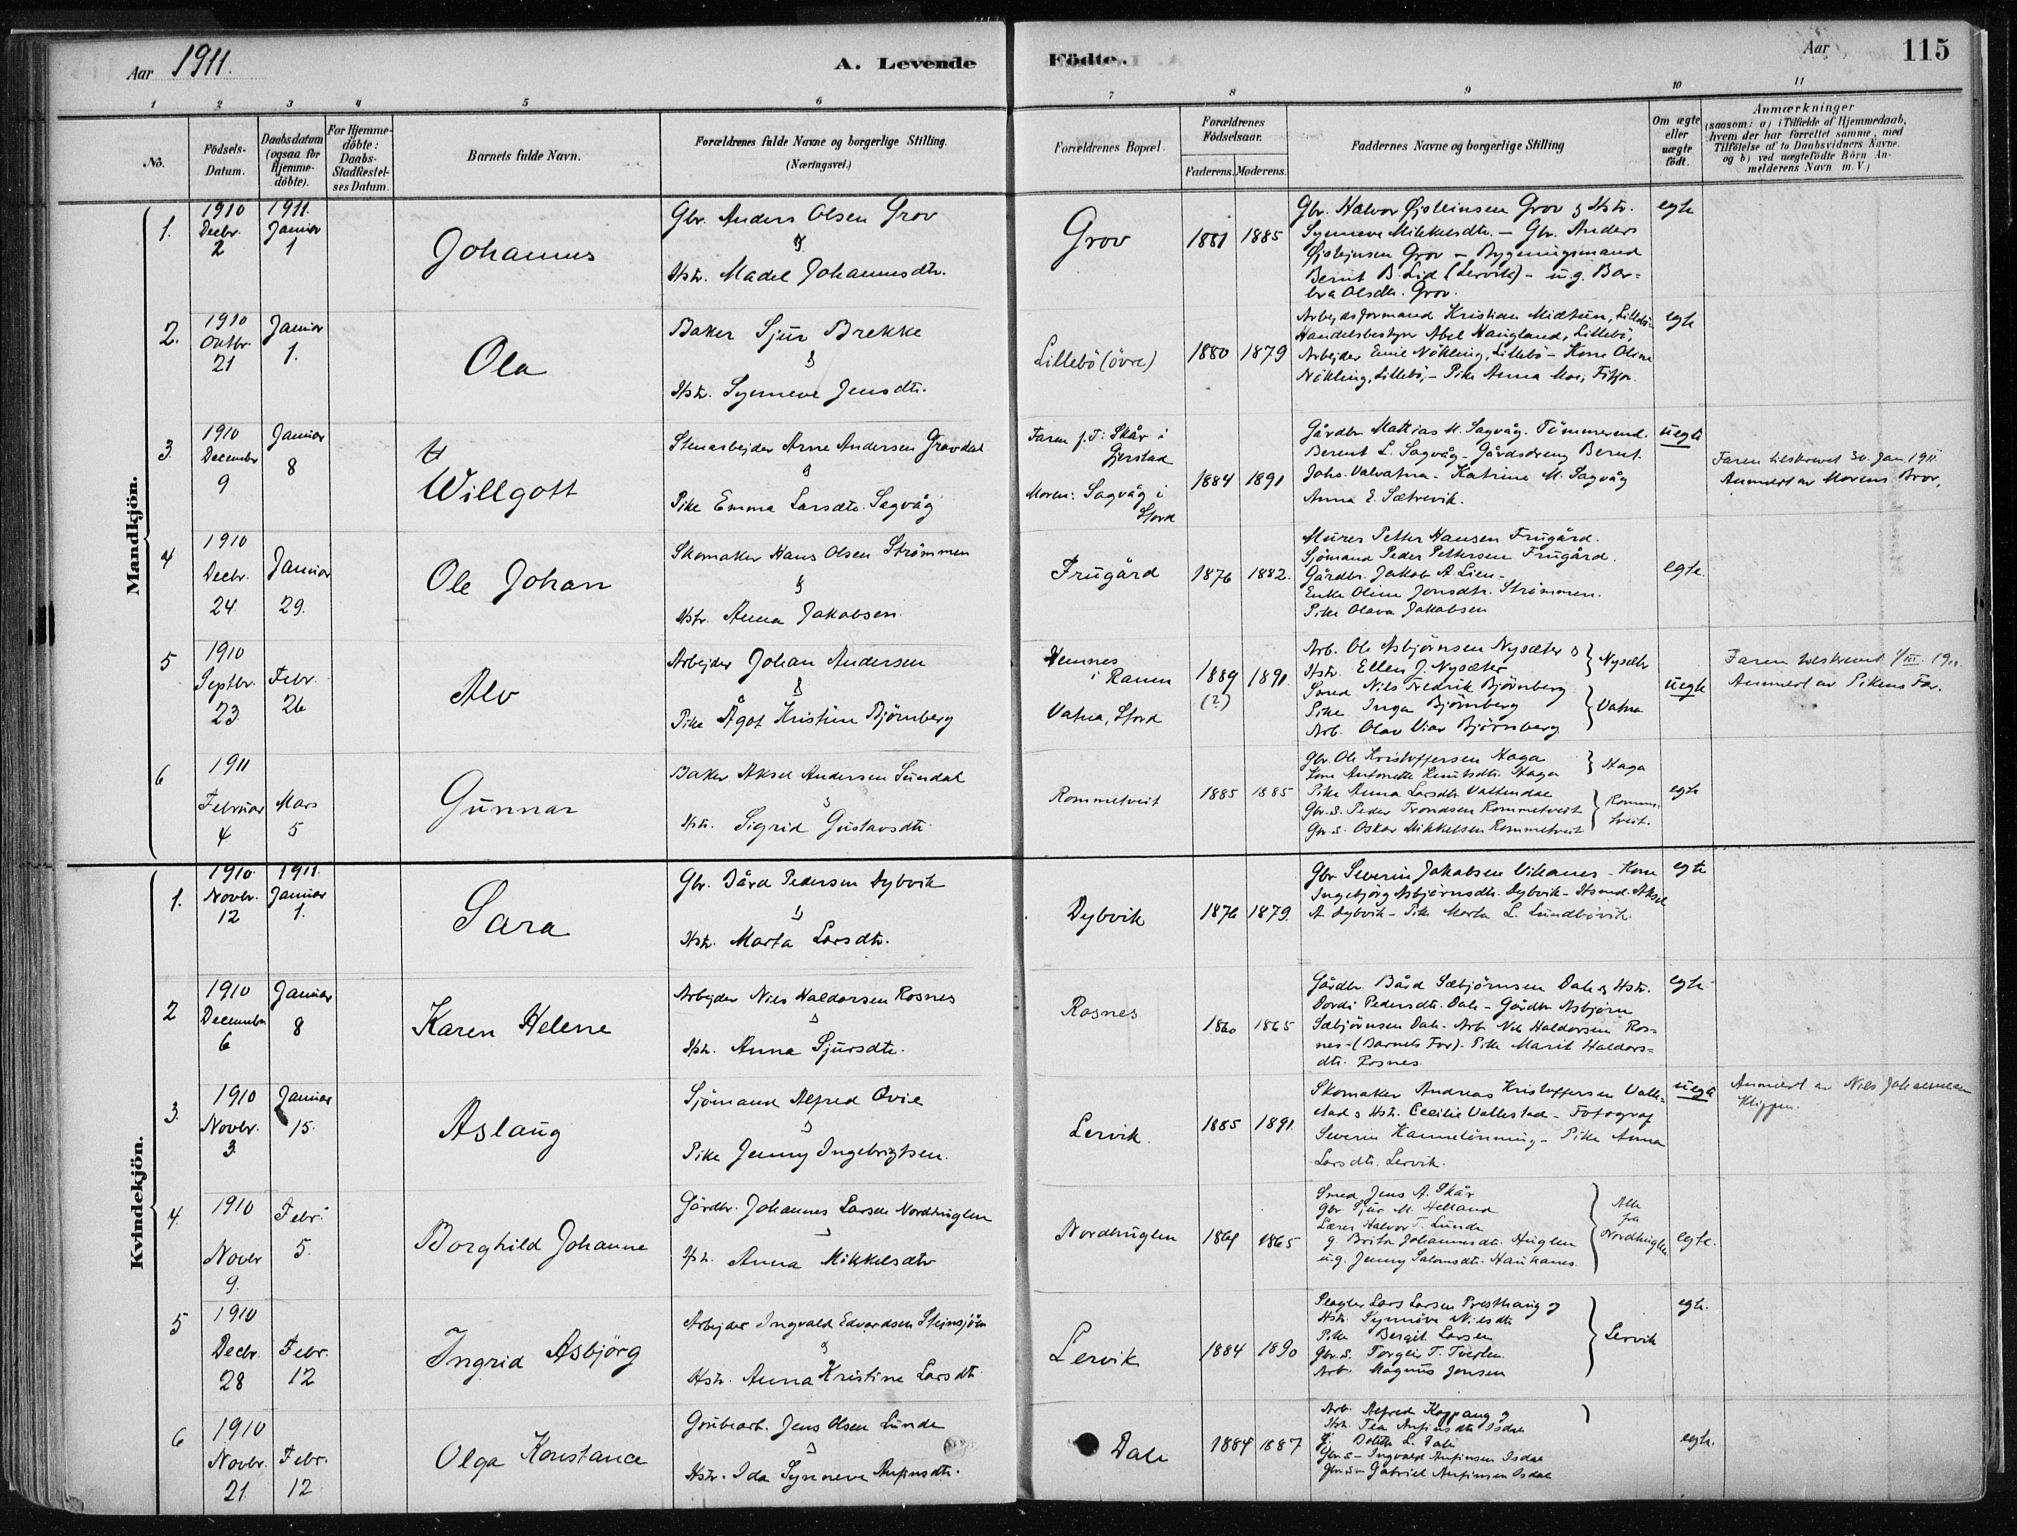 Aar 1911.
A. Levende
Födte.
Aar
115
1 2 3 4 5 6 7 8 9 10 11
No.
Födsels-
Datum.
Daabsdatum
(ogsaa for
Hjemme-
döbte).
For Hjemme-
döbte:
Daabs-
Stadfæstel-
ses Datum.
Barnets fulde Navn.
Forældrenes fulde Navne og borgerlige Stilling.
(Næringsvei.)
Forældrenes Bopæl.
Forældrenes
Födselsaar.
Faderens. Moderens.
Faddernes Navne og borgerlige Stilling
Om ægte
eller
uægte
födt.
Anmærkninger
(saasom: a) i Tilfælde af Hjemmedaab,
hvem der har forrettet samme, med
Tilföielse af to Daabsvidners Navne.
og b) ved uægtefödte Börn An-
melderens Navn m. V.)
Mandkjön.
1.
1910
Decbr.
2
1911.
Januar
1
Johannes
Gbr. Anders Olsen Grov
&
Hstr. Madel Johannesdtr.
Grov
1881 1885
Gbr. Halvor Øjsteinsen Grov & Hstr.
Synneve Mikkelsdtr. - Gbr. Anders
Øjsteinsen Grov - Bygningsmand
Bernt B. Lid (Lervik) - u.g. Bar-
bra Olsdtr. Grov.
egte
2.
1910
Oktbr.
21
Januar
1.
Ola
Baker Sjur Brekke
&
Hstr. Synneve Jensdtr.
Lillebö (övre)
1880 1879
Arbejdsformand Kristian Midtun, Lillebö-
Handelsbestyrer Abel Haugland, Lillebö,
Arbejder Emil Nökling, Lillebö - Kone Oline
Nökling, Lillebö, - Pike Anna Moe, Fitjar.
egte
3.
1910
December
9
Januar
8
Willgott
Stenarbejder Arne Andersen Gravdal
&
Pike Emma Larsdtr. Sagvåg
Faren f. T: Skår i
Gjerstad
Moren: Sagvåg i
Stord
1884 1891
Gårdbr. Mattias M. Sagvåg. Tömmermd.
Berent L. Sagvåg - Gårdsdreng Bernt
Johs. Valvatna - Katrine M. Sagvåg
Anna E. Sætrevik.
uegte
Faren tilskrevet 30. Jan 1911
Anmeldt av Morens Bror,
4
1910
Decbr.
24
Januar
29.
Ole Johan
Skomaker Hans Olsen Strömmen
&
Hstr. Anna Jakobsen.
Frugård
1876 1882.
Murer Petter Hansen Frugård.
Sjömand Peder Pettersen Frugård.
Gårdbr. Jakob A. Lien -
Enke Oline Jonsdtr. Strömmen.
Pike Olava Jakobsen
egte.
5
1910
Septbr.
23
Febr.
26
Alv
Arbejder Johan Andersen
&
Pike Ågot Kristine Björnberg
Hemnes
i Ranen
Vatna, Stord
1889
(?)
1891.
Arb. Ole Asbjørnsen Nysæter &
Hstr. Ellen J. Nysæter
Nysæter
Smed Nils Fredrik Bjørnberg
Pike Inga Björnberg
Arb. Olav Viar Bjørnberg
Vatna
uegte
Faren tilskrevet 1/III. 1911.
Anmeldt av Pikens Far.
6
1911
Februar
4
Mars
5
Gunnar
Baker Aksel Andersen Sundal
&
Hstr. Sigrid Gustavsdtr.
Rommetveit
1885 1885
Gbr. Ole Kristoffersen Haga
Kone Antonette Knutsdtr. Haga
Haga
Pike Anna Larsdtr. Vattendal
Gbr.s. Peder Trondsen Rommetveit
Gbr.s. Oskar Mikkelsen Rommetveit
Romme-
tveit.
egte
Kvindekjön.
1.
1910.
Novbr.
12
1911.
Januar
1.
Sara
Gbr. Bård Pedersen Dybvik
&
Hstr. Marta Larsdtr.
Dybvik
1876 1879.
Gbr. Severin Jakobsen Vikanes - Kone
Ingebjörg Asbjørnsdtr. Dybvik - Hsmd. Aksel
A. Dybvik - Pike Marta L. Lundbövik.
egte
2
1910
December
6
Januar
8
Karen Helene
Arbejder Nils Haldorsen Rosnes
&
Hstr. Anna Sjursdtr.
Rosnes
1860 1865
Gårdbr. Bård Sæbjørnsen Dale & Hstr.
Dordi Pedersdtr. Dale - Gårdbr. Asbjörn
Sæbjörnsen Dale - Arb. Nils Haldorsen Ros-
nes - (Barnets Far). Pike Marit Haldors-
dtr. Rosnes.
egte
3.
1910
Novbr.
3.
Januar
15.
Aslaug
Sjömand Alfred Ovie
&
Pike Jenny Ingebrigtsen.
Lervik.
1885 1891.
Skomaker Andreas Kristoffersen Valle-
stad & Hstr. Cecilie Vallestad - Fotograf
Severin Kannelönning - Pike Anna
Larsdtr. Lervik.
uegte
Anmeldt av Nils Johannesen
Klippen.
4.
1910
Novbr
9.
Febr.
5.
Borghild Johanne
Gårdbr. Johannes Larsen Nordhuglen
&
Hstr. Anna Mikkelsdtr
Nordhuglen
1861 1865
Smed Jens A. Skår
Gbr. Sjur M. Helland
Lærer Halvor T. Lunde
g. Brita Johannesdtr. Huglen
u.g. Jenny Salomsdtr. Haukanes.
Alle
fra
Nordhuglen
egte.
5
1910
Decbr.
28
Febr.
12
Ingrid Asbjörg
Arbejder Ingvald Edvardsen Steinsjöen
&
Hstr. Anna Kristine Larsdtr.
Lervik
1884 1890
Lars Larsen Presthaug og
Hstr. Synnöve Nilsdtr
Pike Bergit Larsen
Gbr.s. Torgeir T. Tveiten
Arb. Magnus Jensen
Lervik
egte.
6
1910
Novbr.
21.
Febr.
12
Olga Konstance
Grubearb. Jens Olsen Lunde
&
Hstr. Ida Synneve Anfinsdtr.
Dale
1884 1887
Arb. Alfred Koppang og
Hstr. Tea Anfinsdtr. Isdal
Pi. L. Dale
Gbr.s - Ingvald Anfinsen Isdal
Gbr.s - Gabriel Anfinsen Isdal
egte.